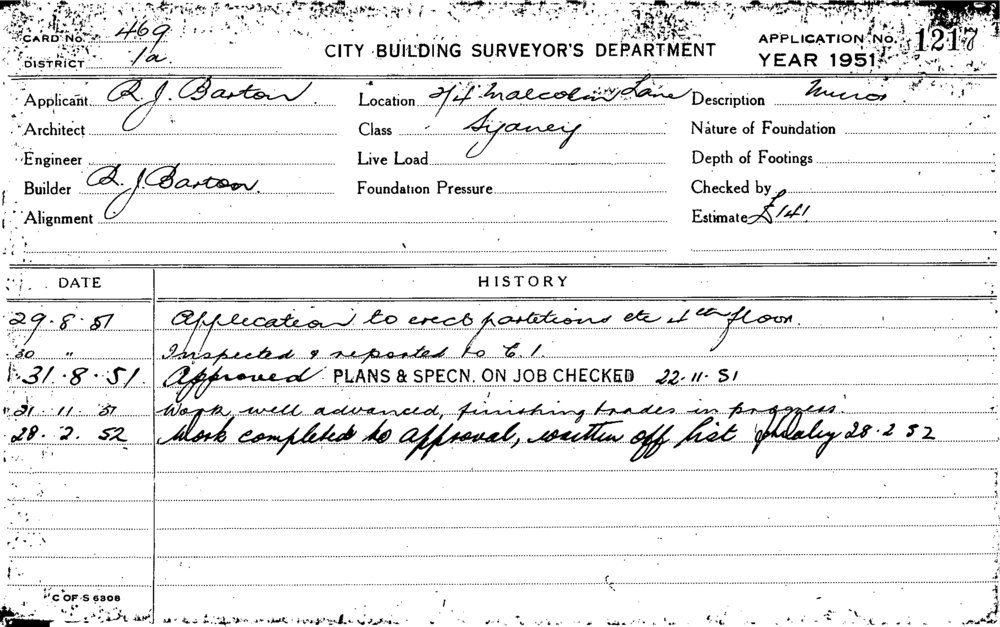 CARD No. 469
DISTRICT 1a.
CITY BUILDING SURVEYOR'S DEPARTMENT
APPLICATION No. 1217
YEAR 1951
Applicant R. J. Barton Location 2/4 Malcolm Lane Description Minor
Architect Class Sydney Nature of Foundation
Engineer Live Load Depth of Footings
Builder R. J. Barton. Foundation Pressure Checked by
Alignment Estimate £141
DATE HISTORY
29.8.51 Application to erect partitions etc 4th floor.
30 " Inspected & reported to C.I.
31.8.51. Approved PLANS & SPECN. ON JOB CHECKED 22.11.51
21 11 51 Work well advanced, finishing trades in progress.
28.2.52 Work completed to approval, written off list 28.2 52
C OF S 6308